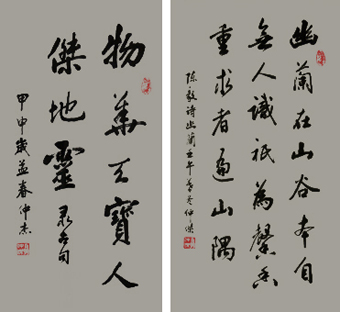 幽蘭在山谷本自
無人識祇為馨香
重求者遍山隅
陳毅詩幽蘭壬午暮冬仲傑
物華天寶人
傑地靈录古句
甲申歲孟春仲杰